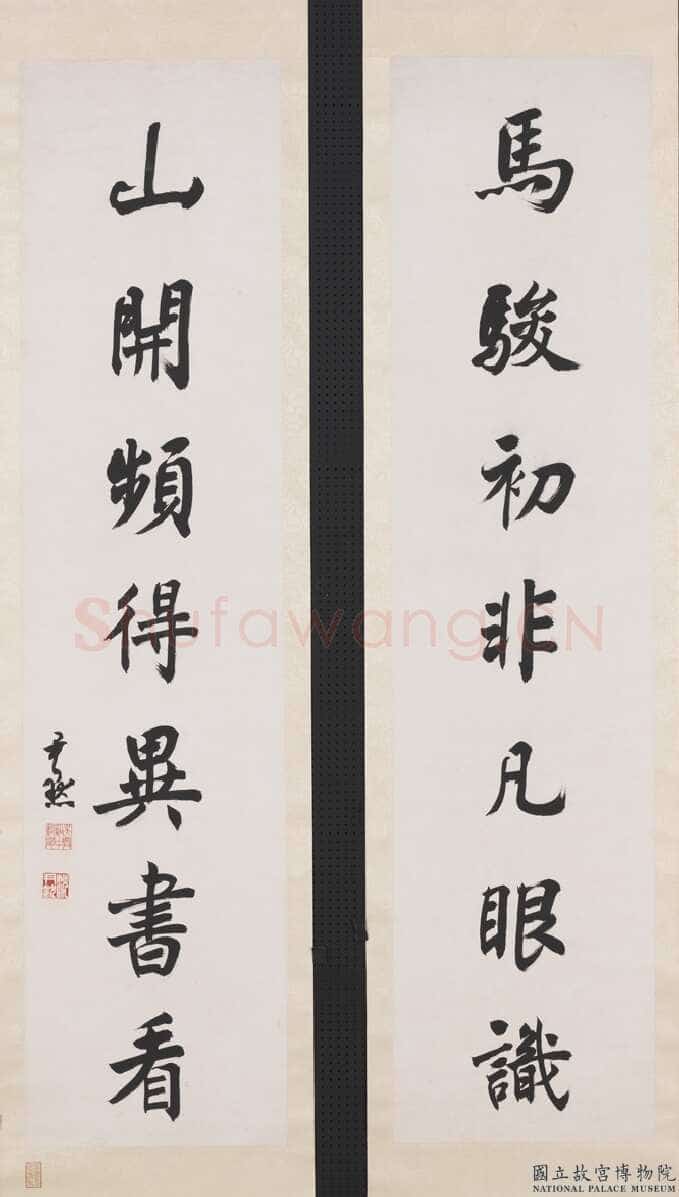 馬駿初非凡眼識
山開頻得異書看
尹默
Shufawang.CN
國立故宮博物院
NATIONAL PALACE MUSEUM